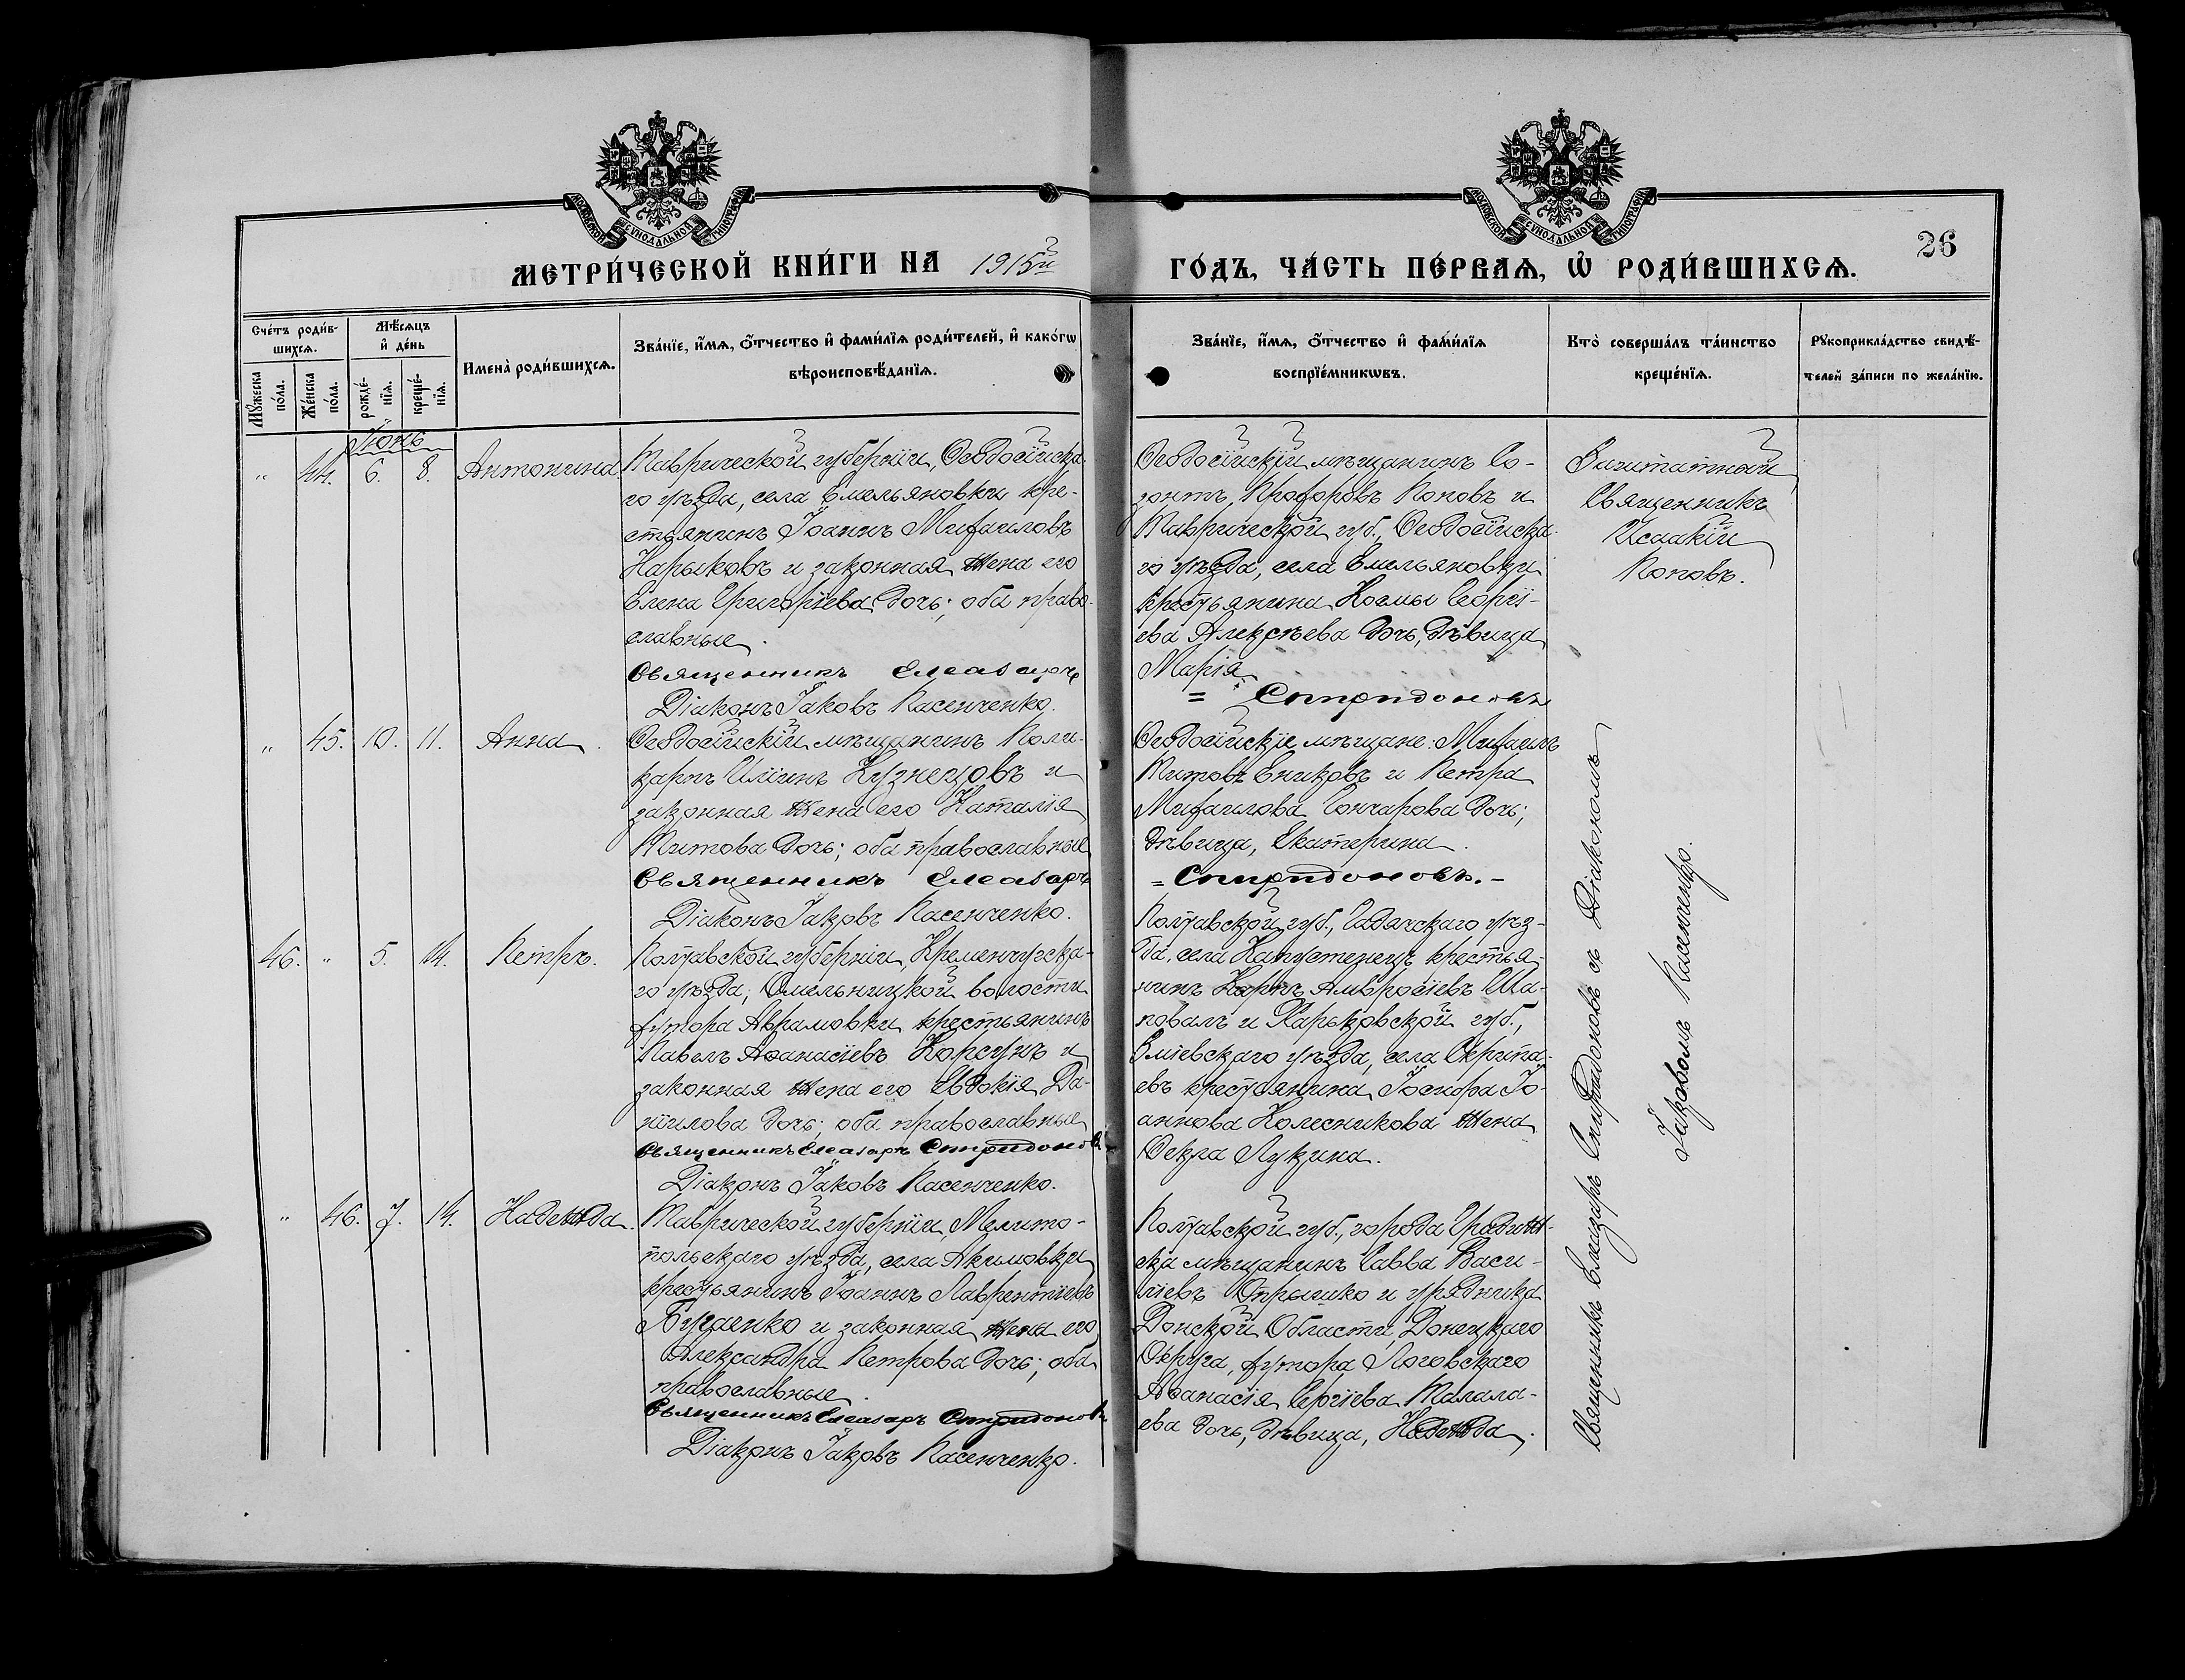 МОСКОВСКОЙ СУНОДАЛЬНОЙ ТИПОГРАФІИ
МОСКОВСКОЙ СУНОДАЛЬНОЙ ТИПОГРАФІИ
МЕТРИ́ЧЕСКОЙ КНИ́ГИ НА 1915й
ГО́ДЪ, ЧА́СТЬ ПЕ́РВАѦ, Ѡ҆ РОДИ́ВШИХСѦ.
26
Сче́тъ роди́в-
шихсѧ.
Мꙋ́жеска
по́ла.
Же́нска
по́ла.
Мѣ́сѧцъ
и҆ де́нь
рожде́-
нїѧ.
креще́-
нїѧ.
Имена̀ роди́вшихсѧ.
Зва́нїе, и҆́мѧ, ѻ҆́тчество и҆ фами́лїѧ роди́телей, и҆ како́гѡ
вѣроисповѣ́данїѧ.
Зва́нїе, и҆́мѧ, ѻ҆́тчество и҆ фами́лїѧ
воспрїе́мникѡвъ.
Кто̀ соверша́лъ та́инство
креще́нїѧ.
Рꙋкоприкла́дство свидѣ́-
телей за́писи по жела́нїю.
Іюнь
" 44. 6. 8. Антонина.
Таврической губерніи, Ѳеодосійска-
го уѣзда, села Емельяновки кре-
стьянинъ Іоаннъ Михаиловъ
Нарыковъ и законная жена его
Елена Григоріева дочь; оба право-
славные.
Священникъ Елеазаръ
Діаконъ Іаковъ Касенченко.
Ѳеодосійскій мѣщанинъ Со-
зонтъ Прохоровъ Поповъ и
Таврической губ., Ѳеодосійска-
го уѣзда, села Емельяновки
крестьянина Космы Георгі-
ева Алексѣева дочь, дѣвица
Марія.
= Спиридоновъ
Заштатный
Священникъ
Исаакій
Поповъ.
" 45. 10. 11. Анна.
Ѳеодосійскій мѣщанинъ Поли-
карпъ Иліинъ Кузнецовъ и
законная жена его Наталія
Титова дочь; оба православные
Священникъ Елеазаръ
Діаконъ Іаковъ Касенченко.
Ѳеодосійскіе мѣщане: Михаилъ
Титовъ Ениковъ и Петра
Михаилова Гончарова дочь;
дѣвица, Екатерина.
= Спиридоновъ. –
46. " 5. 14. Петръ.
Полтавской губерніи, Кременчугска-
го уѣзда, Омельницкой волости
хутора Аврамовки крестьянинъ
Павелъ Аѳанасіевъ Корсунъ и
законная жена его Евдокія Да-
ніилова дочь; оба православные
Священникъ Елеазаръ Спиридоновъ
Діаконъ Іаковъ Касенченко.
Полтавской губ., Гадячскаго уѣз-
да, села Капустенецъ крестья-
нинъ Карпъ Амвросіевъ Ша-
повалъ и Харьковской губ.,
Зміевскаго уѣзда, села Охрипа-
евъ крестьянина Іосифа Іо-
аннова Колесникова жена
Ѳекла Лукина.
" 46. 7. 14. Надежда.
Таврической губерніи, Мелито-
польскаго уѣзда, села Акимовки
крестьянинъ Іоаннъ Лаврентіевъ
Бугаенко и законная жена его
Александра Петрова дочь; оба
православные.
Священникъ Елеазаръ Спиридоновъ
Діаконъ Іаковъ Касенченко.
Полтавской губ., города Градиж-
ска мѣщанинъ Савва Васи-
ліевъ Отрышко и урядника
Донской Области, Донецкаго
Округа, хутора Логовскаго
Аѳанасія Сергіева Малала-
ева дочь, дѣвица, Надежда.
Священникъ Елеазаръ Спиридоновъ съ Діакономъ
Іаковомъ Касенченко.